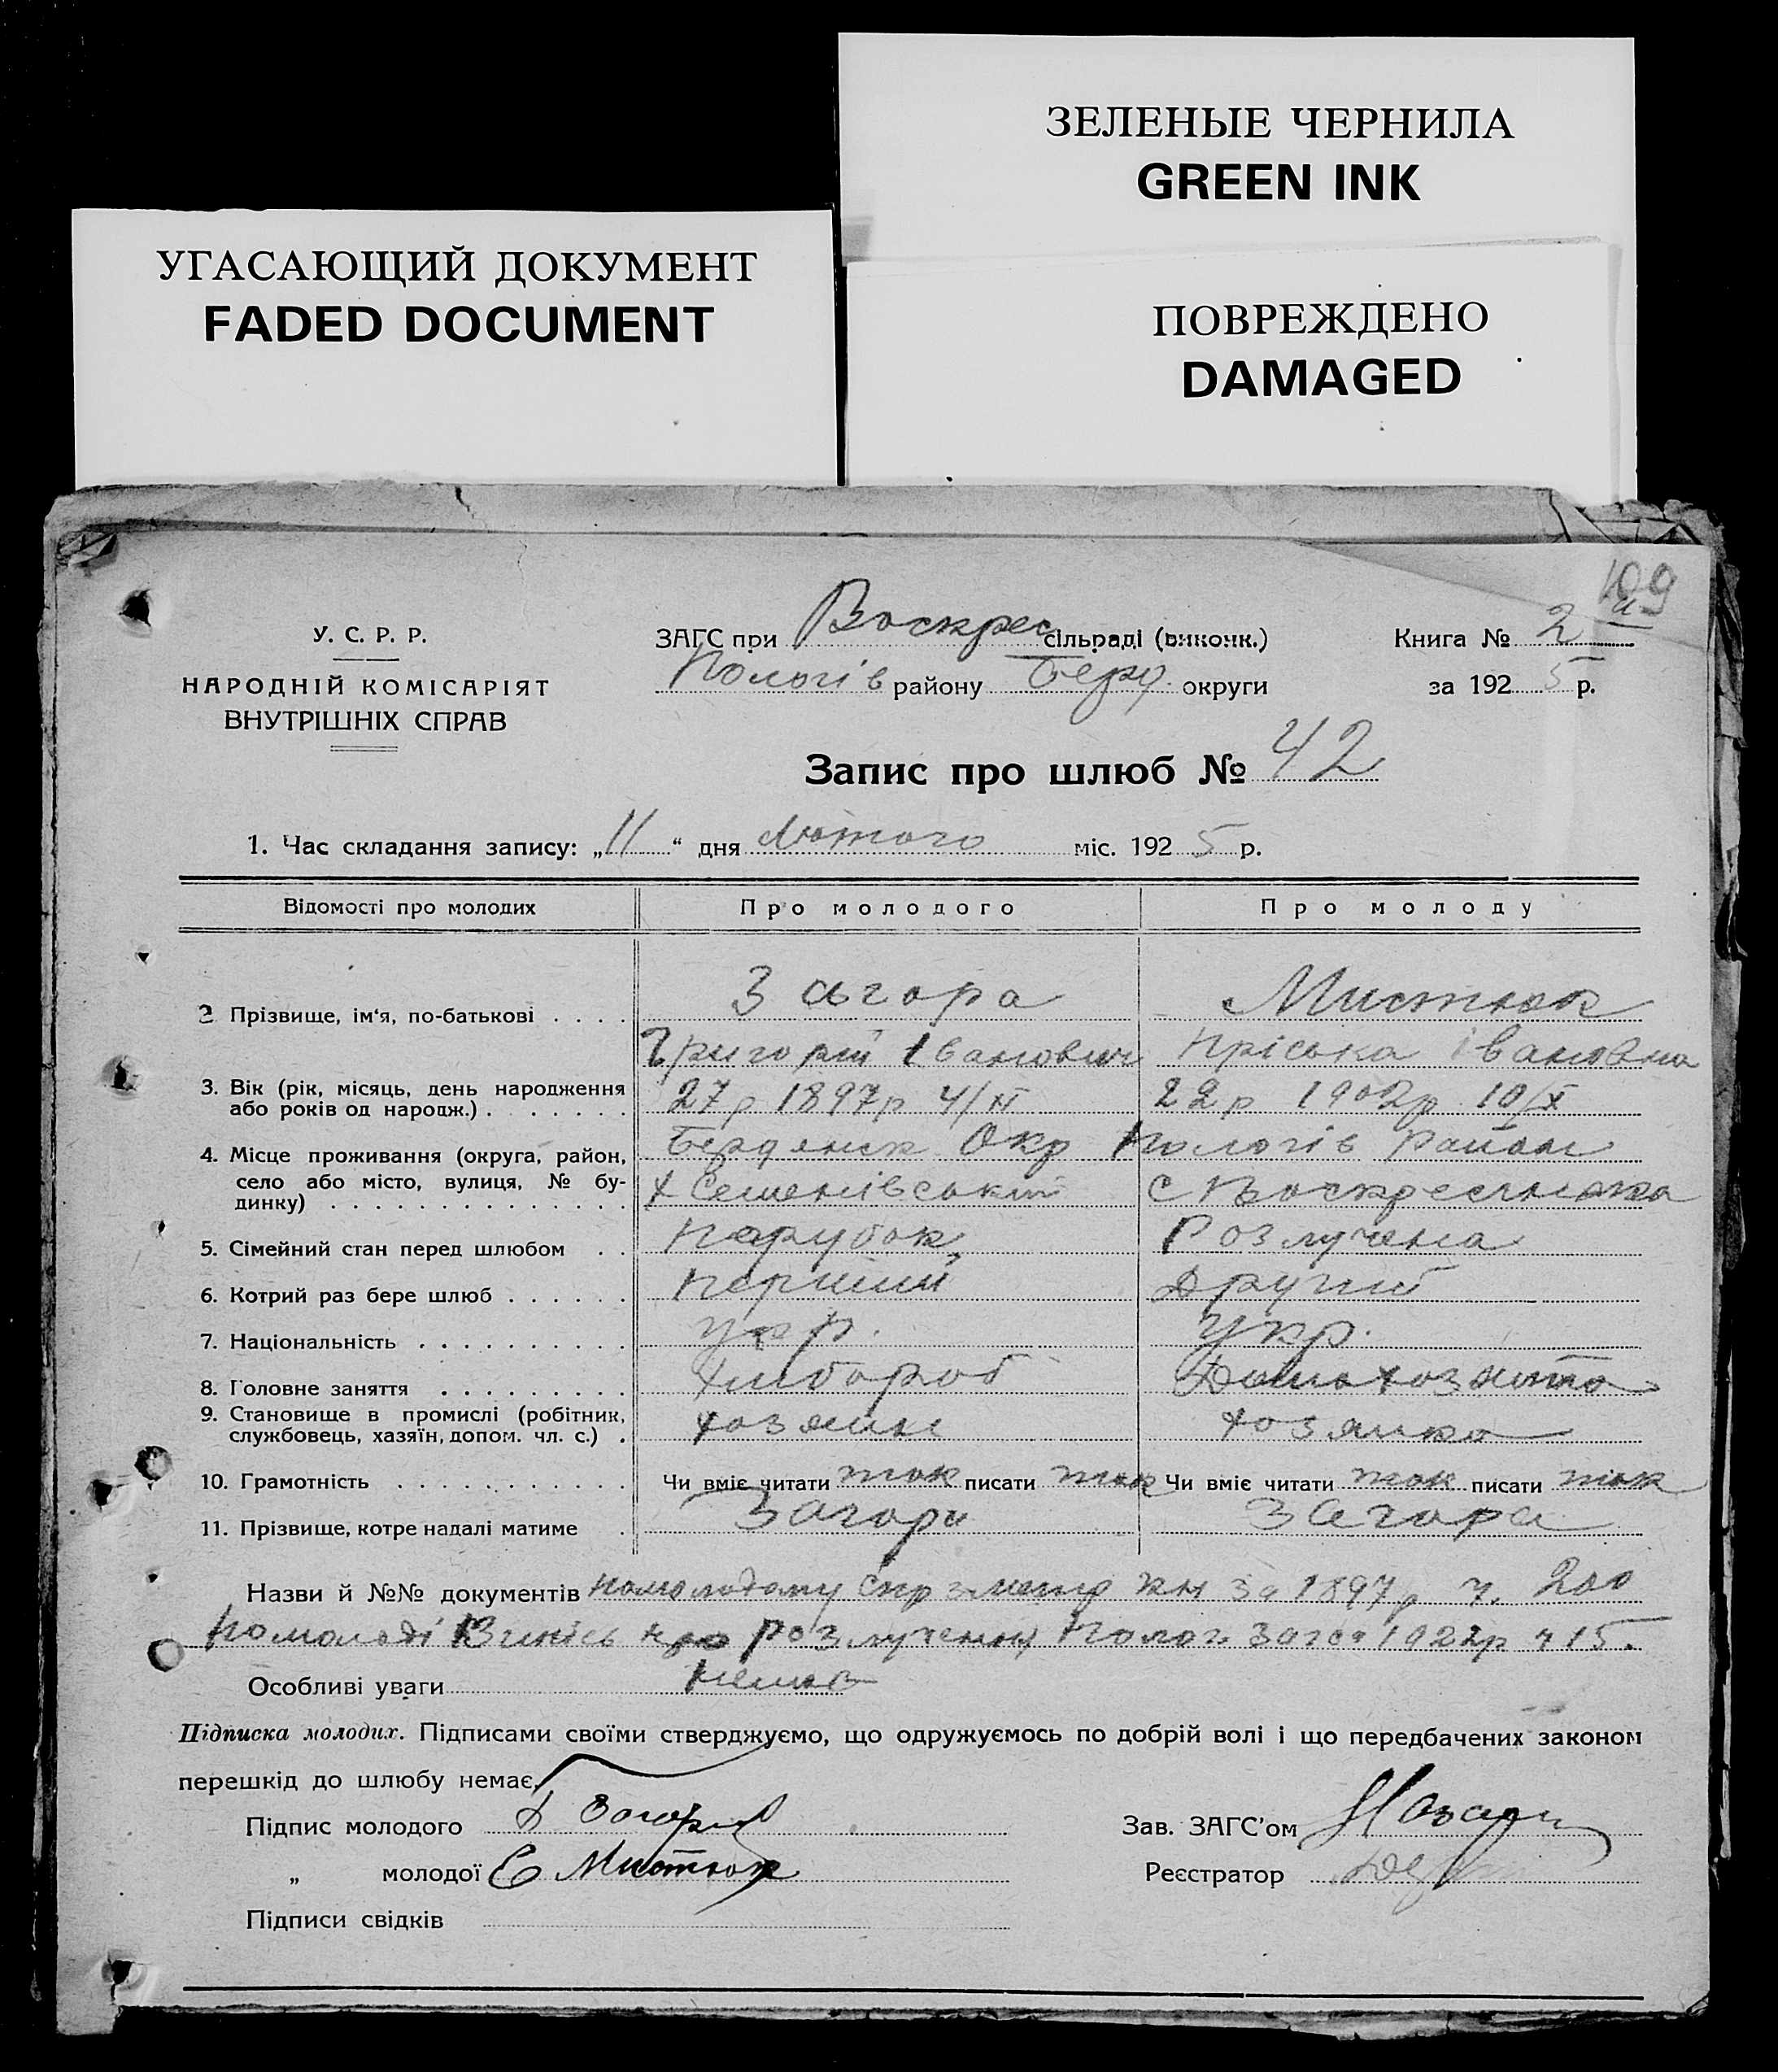 ЗЕЛЕНЫЕ ЧЕРНИЛА
GREEN INK
УГАСАЮЩИЙ ДОКУМЕНТ
FADED DOCUMENT
ПОВРЕЖДЕНО
DAMAGED
109
У. С. Р. Р.
НАРОДНІЙ КОМІСАРІЯТ
ВНУТРІШНІХ СПРАВ
ЗАГС при Воскрес сільраді (виконк.)
Пологів району Берд. округи
Книга № 2
за 1925 р.
Запис про шлюб № 42
1. Час складання запису: „11“ дня Лютого міс. 1925 р.
Відомості про молодих Про молодого Про молоду
2 Прізвище, ім‘я, по-батькові . . . . Загора Мистюк
Григорій Іванович Пріська Івановна
3. Вік (рік, місяць, день народження або років од народж.) . . . . . . . 27 р 1897 р 22 р 1902 р 10/X
4. Місце проживання (округа, район, село або місто, вулиця, № будинку) . . . . . . . . . . . . . . Бердянск Окр Пологів Район
х Семенівський с Воскресенька
5. Сімейний стан перед шлюбом . . Парубок Розлучена
6. Котрий раз бере шлюб . . . . . . Перший Другий
7. Національність . . . . . . . . . . укр. Укр.
8. Головне заняття . . . . . . . . . Хлібороб
9. Становище в промислі (робітник, службовець, хазяїн, допом. чл. с.) . хозяин хозяика
10. Грамотність . . . . . . . . . . . Чи вміє читати так писати так Чи вміє читати так писати так
11. Прізвище, котре надалі матиме . Загора Загора
Назви й №№ документів помолодому за 1897 р ч. 200
помолоді про розлучення Полог. Загса 1922р ч 15.
Особливі уваги Немає
Підписка молодих. Підписами своїми стверджуємо, що одружуємось по добрій волі і що передбачених законом
перешкід до шлюбу немає.
Підпис молодого Загора
Зав. ЗАГС’ом
„ молодої Е Мистюк
Реєстратор
Підписи свідків